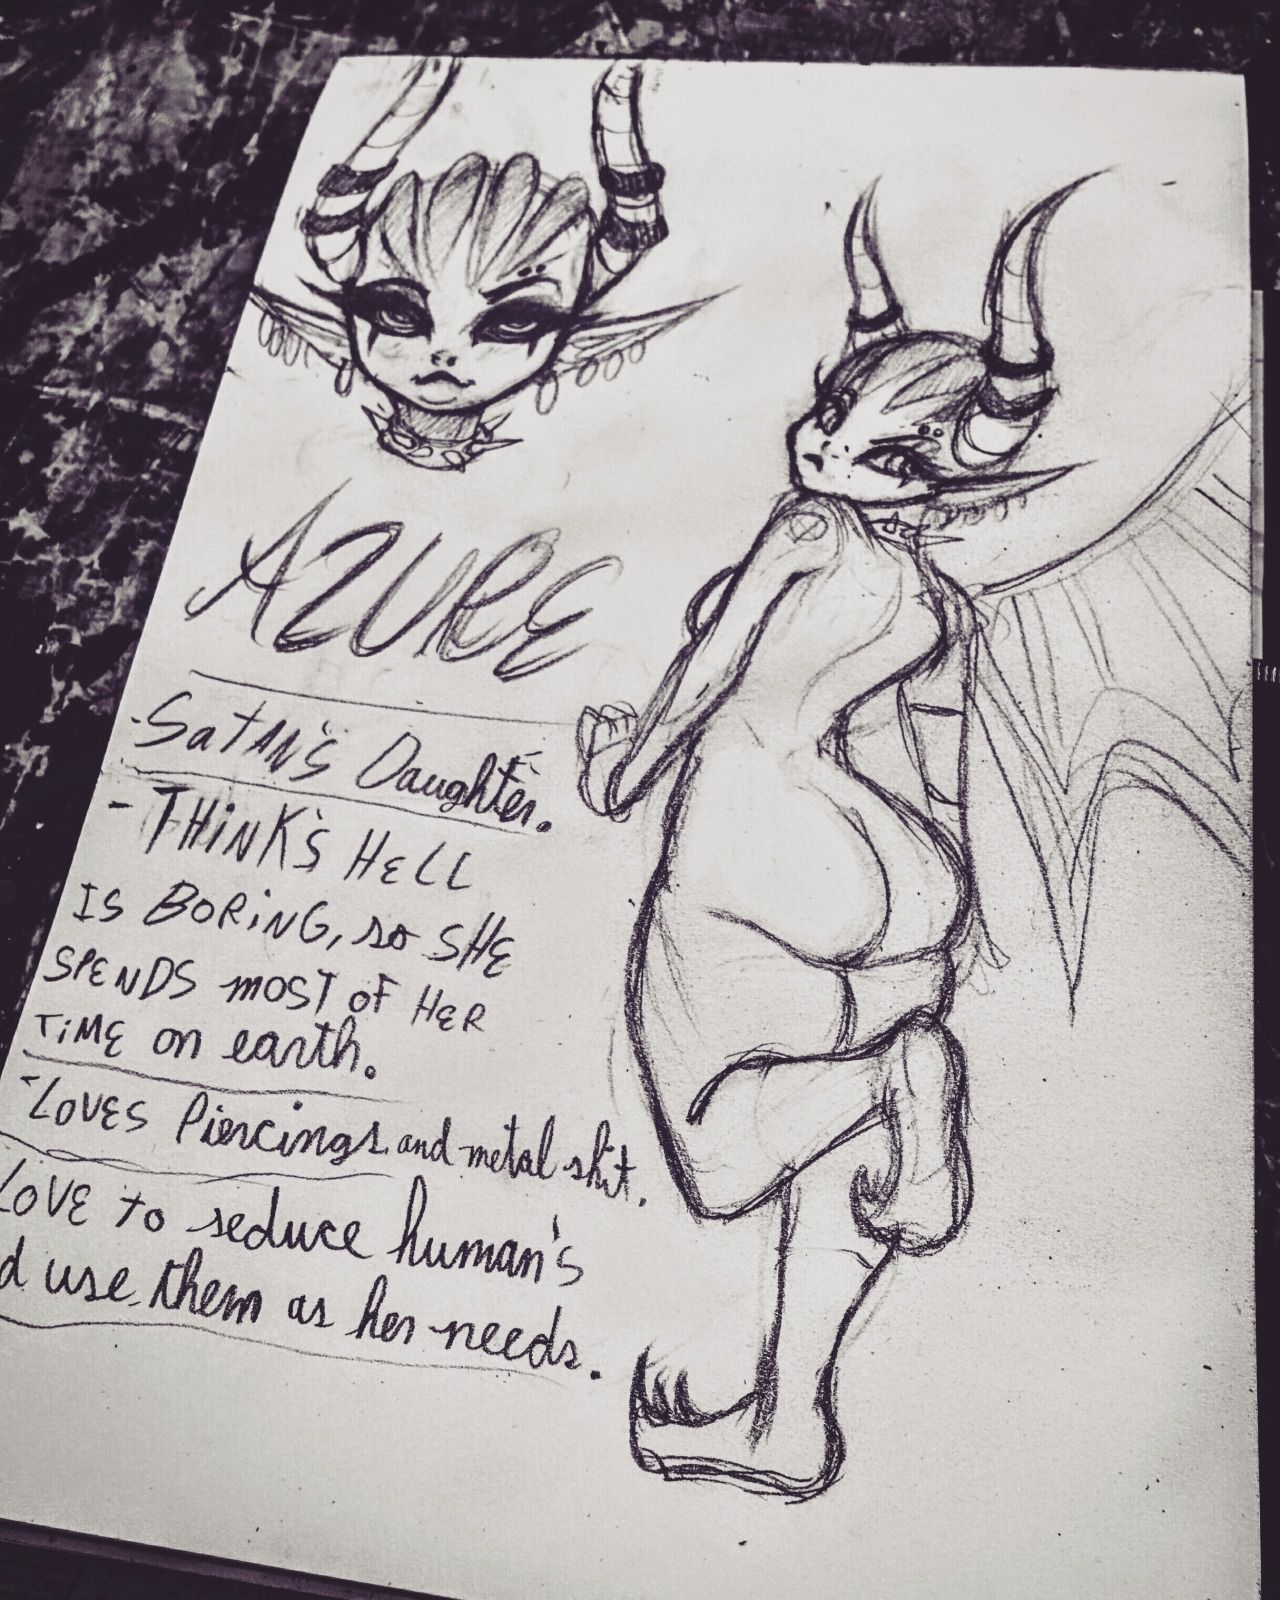 AZURE
-Satan's Daughter.
- Think's Hell
is Boring, so she
spends most of her
time on earth.
-Loves Piercings and metal shit.
Love to seduce human's
d use them as her needs.